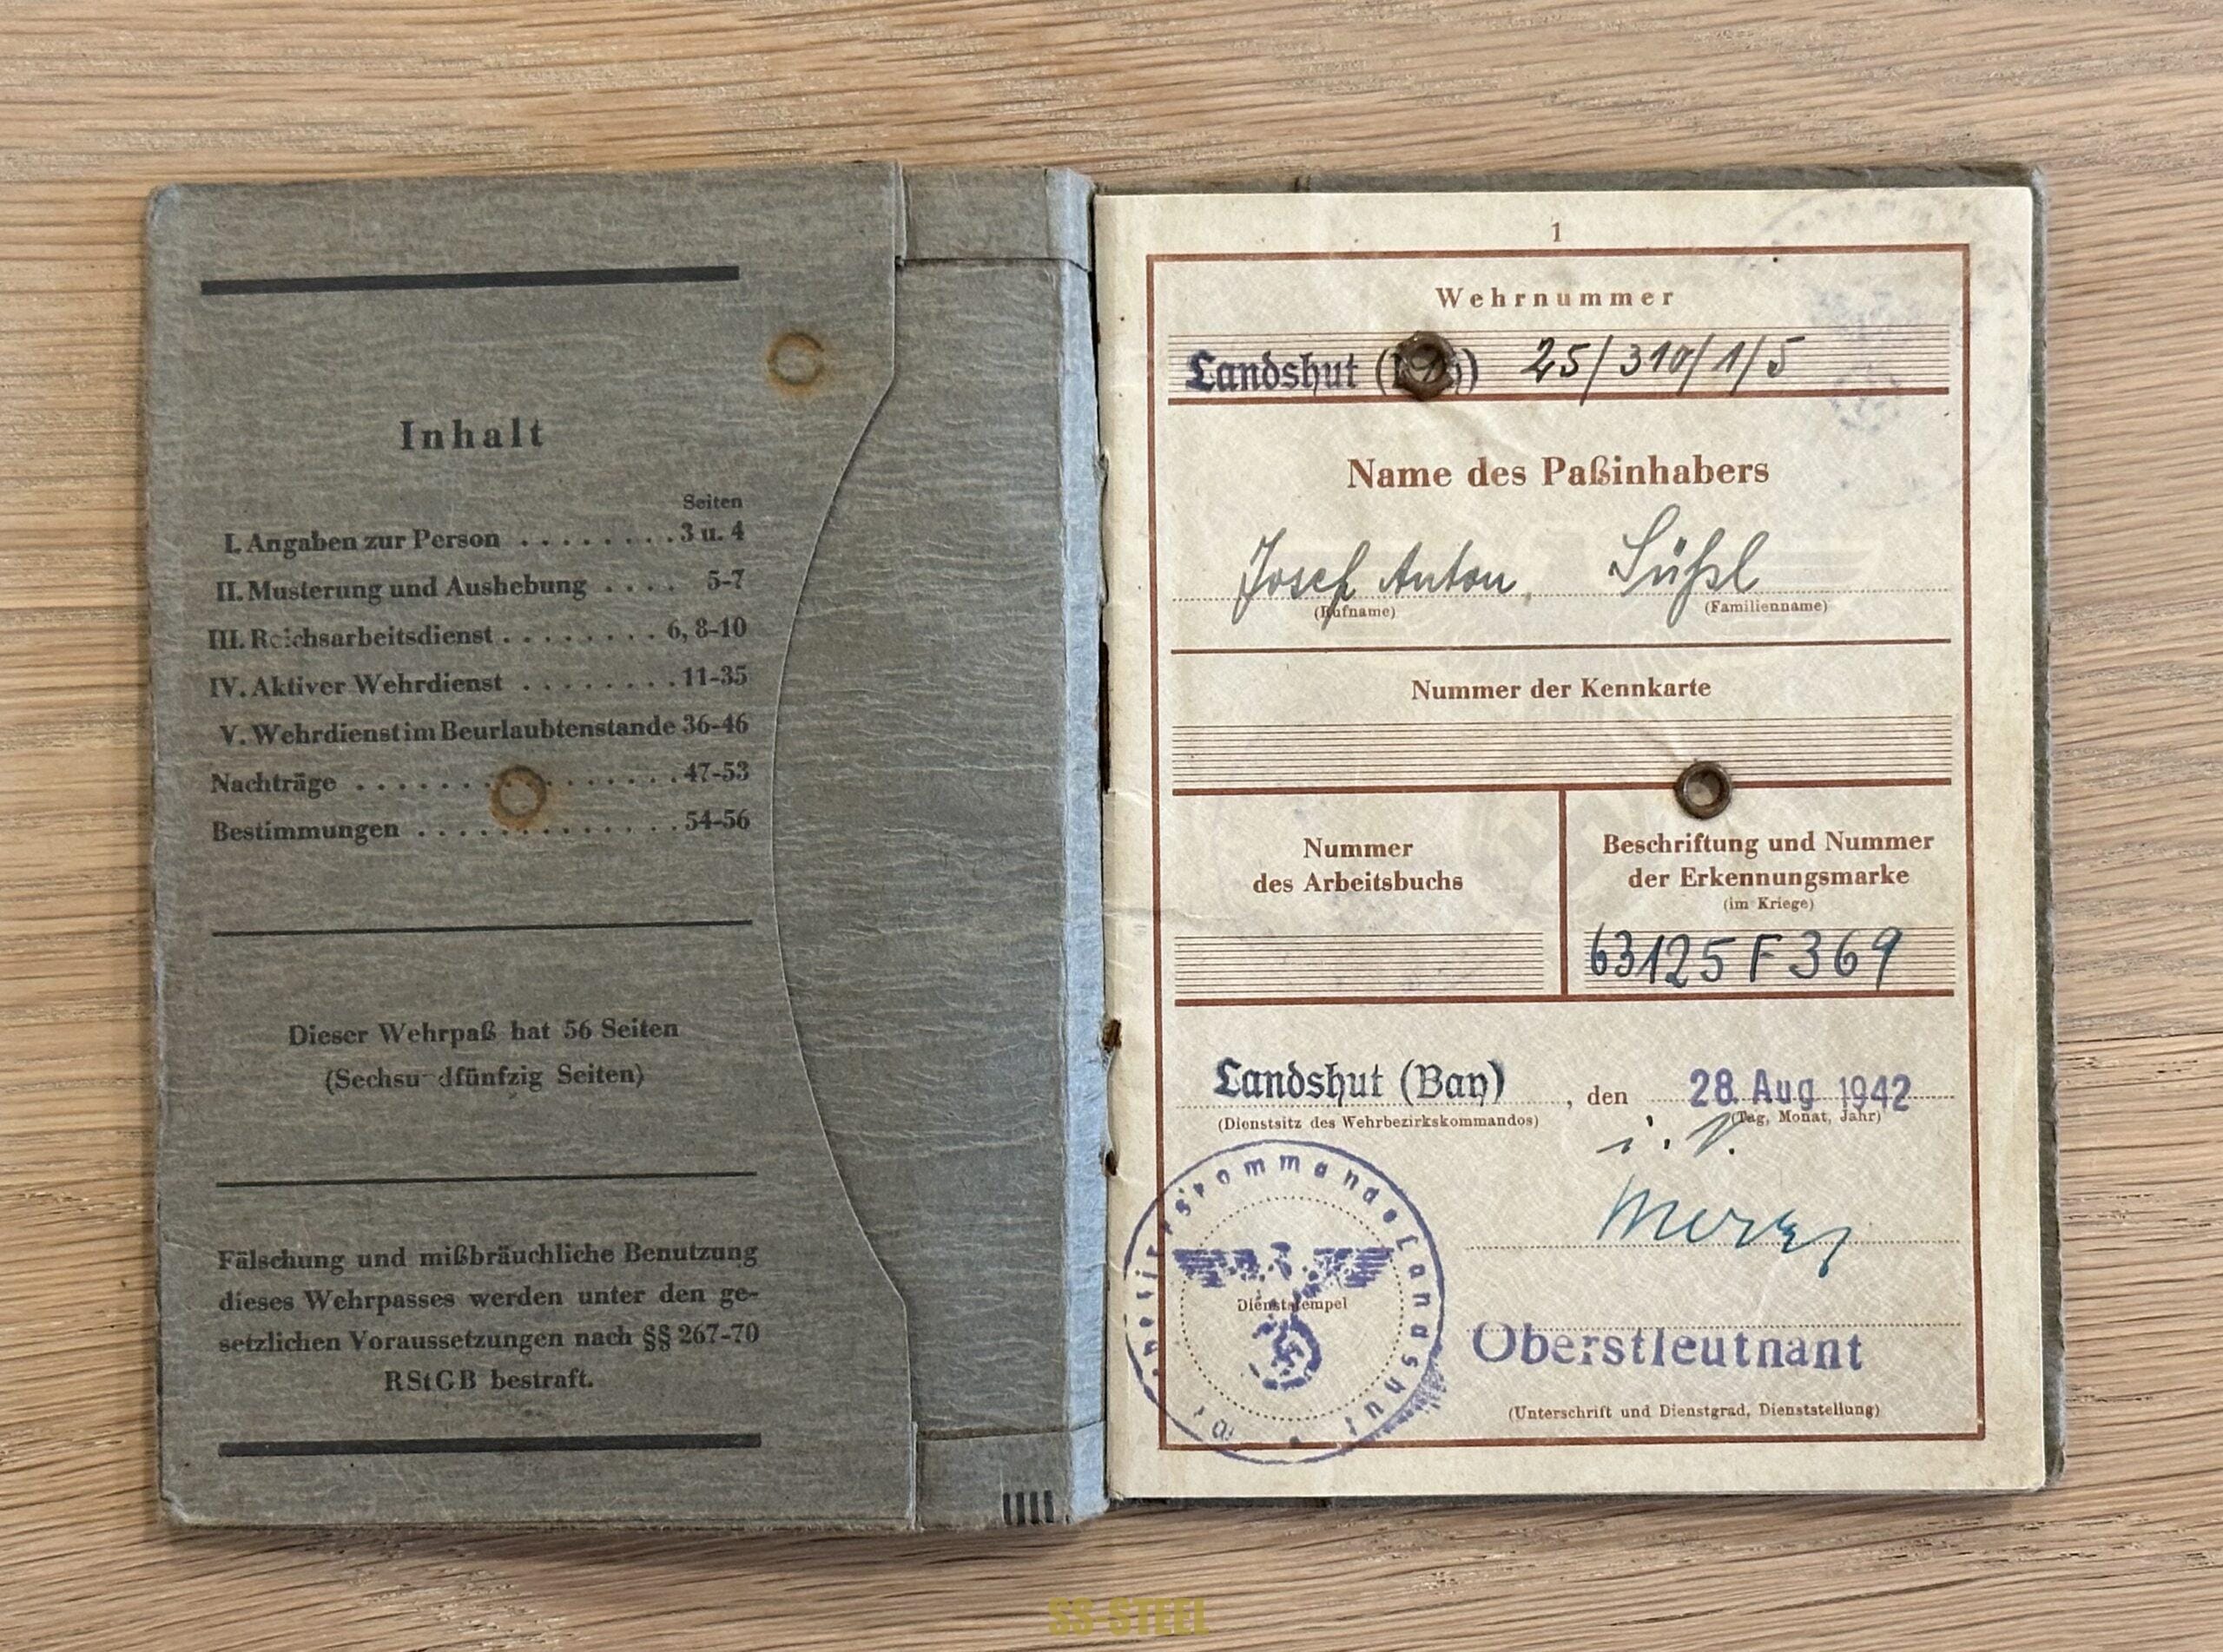 Inhalt
Seiten
I. Angaben zur Person ........ 3 u. 4
II. Musterung und Aushebung .... 5-7
III. Reichsarbeitsdienst ........ 6, 8-10
IV. Aktiver Wehrdienst ........ 11-35
V. Wehrdienst im Beurlaubtenstande 36-46
Nachträge .............. 47-53
Bestimmungen ............. 54-56
Dieser Wehrpaß hat 56 Seiten
(Sechsu dfünfzig Seiten)
Fälschung und mißbräuchliche Benutzung
dieses Wehrpasses werden unter den ge-
setzlichen Voraussetzungen nach §§ 267-70
RStGB bestraft.
1
Wehrnummer
Landshut 25/310/1/5
Name des Paßinhabers
Josef Anton Süßl
(Rufname) (Familienname)
Nummer der Kennkarte
Nummer
des Arbeitsbuchs
Beschriftung und Nummer
der Erkennungsmarke
(im Kriege)
63125 F 369
Landshut (Bay) , den 28. Aug 1942
(Dienstsitz des Wehrbezirkskommandos) (Tag, Monat, Jahr)
i. V.
Dienststempel
Oberstleutnant
(Unterschrift und Dienstgrad, Dienststellung)
SS-STEEL